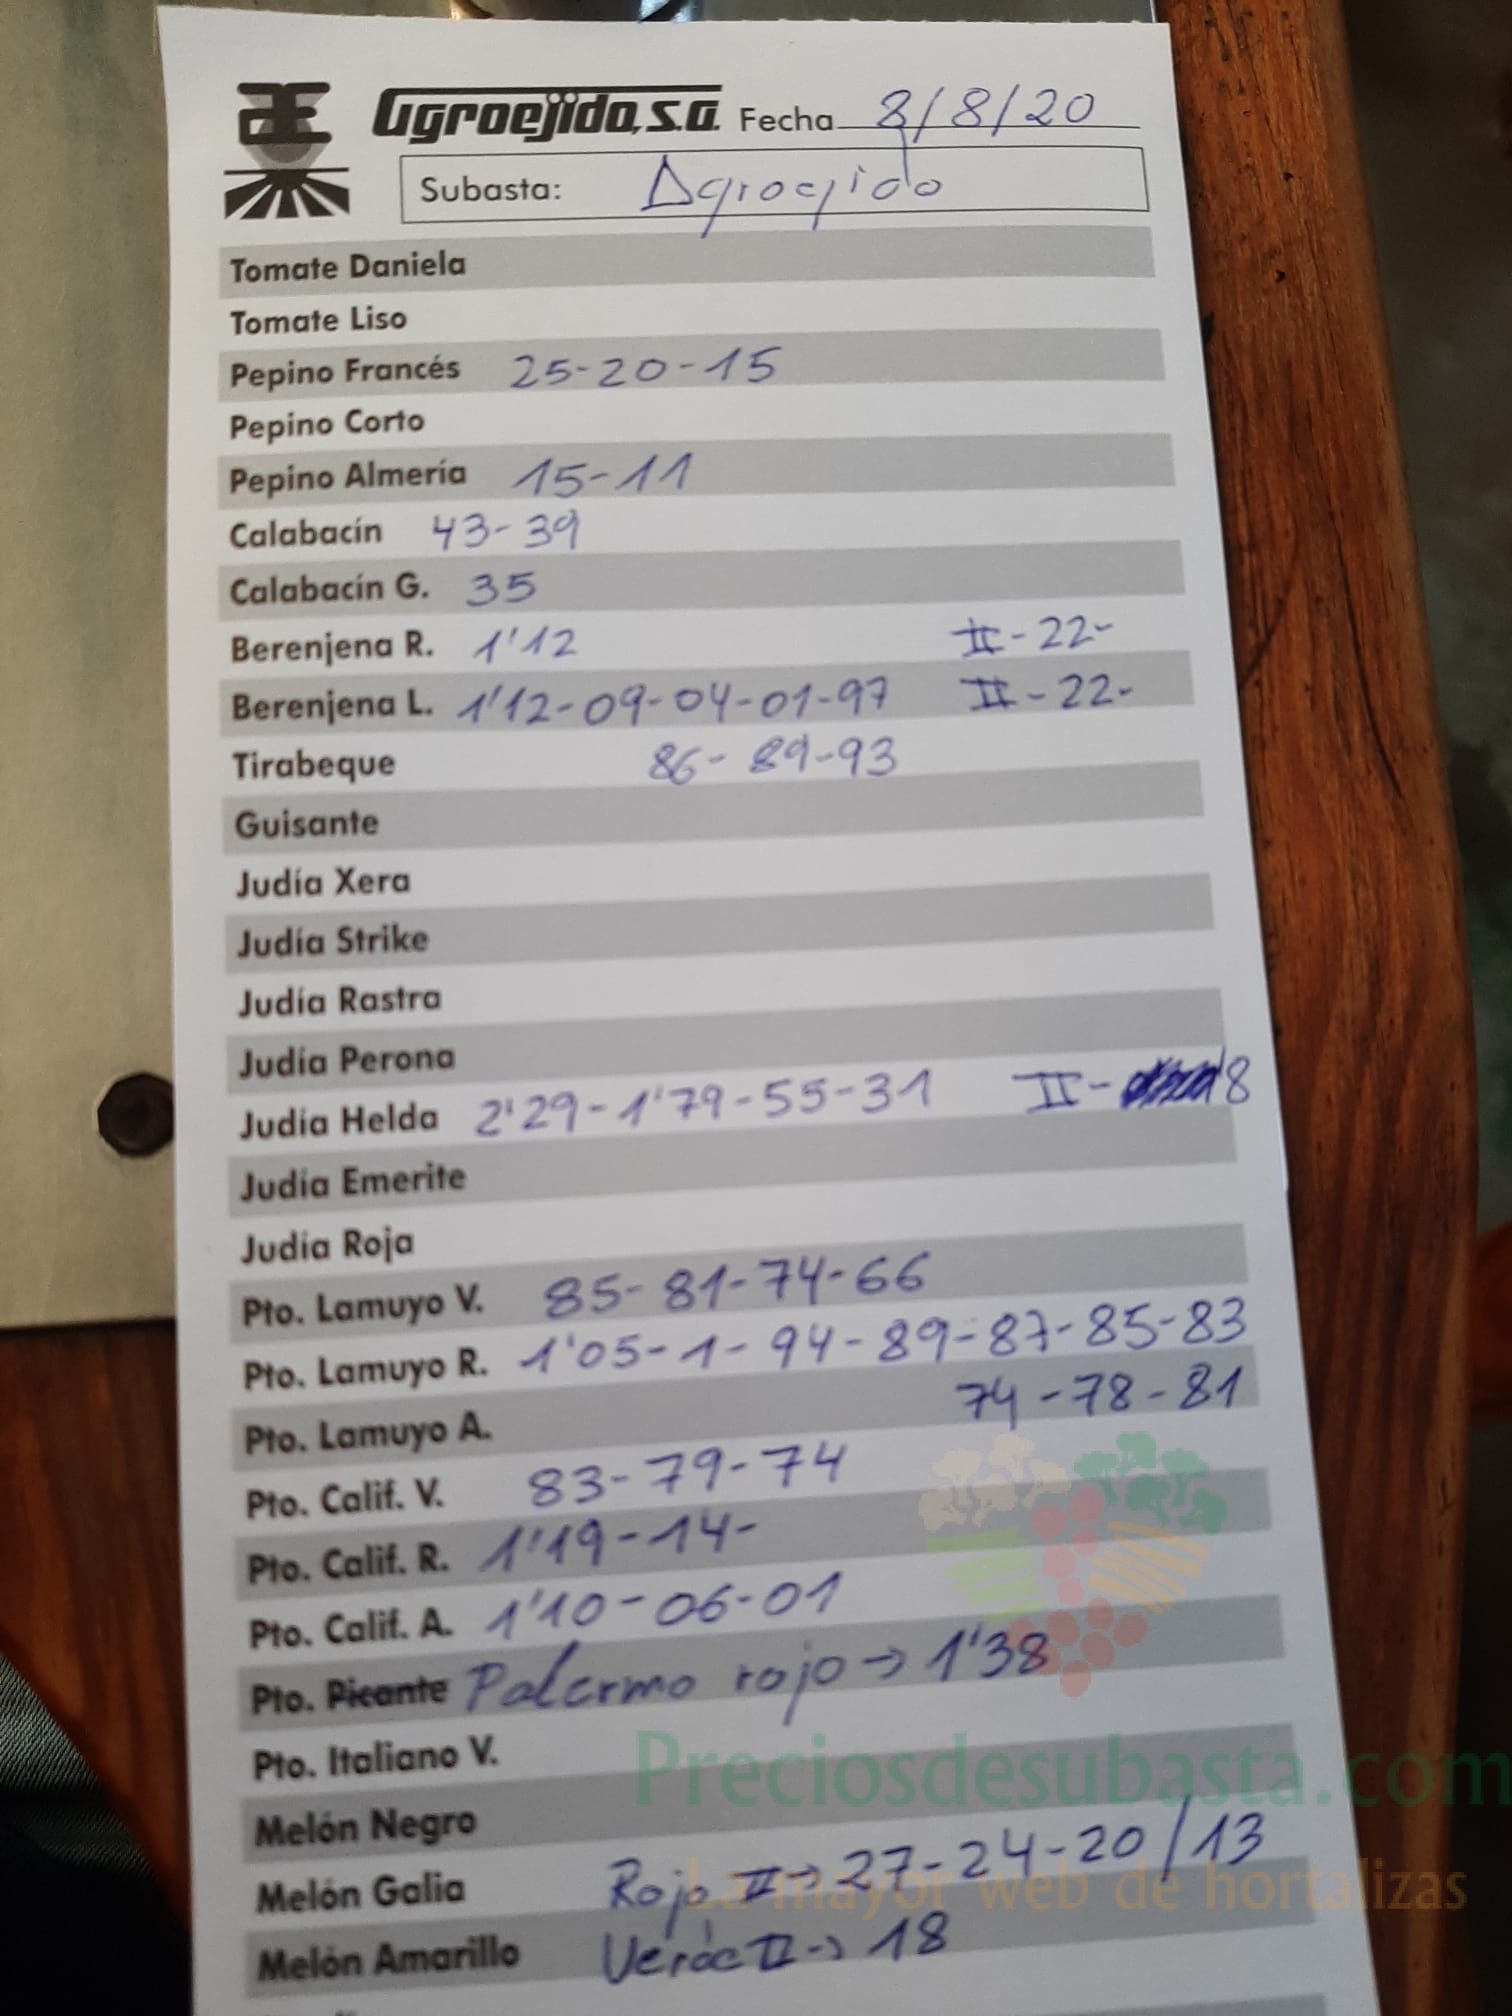 Agroejido, S.A. Fecha 8/8/20
Subasta: Agroejido
Tomate Daniela
Tomate Liso
Pepino Francés 25-20-15
Pepino Corto
Pepino Almería 15-11
Calabacín 43-39
Calabacín G. 35
Berenjena R. 1'12 II-22-
Berenjena L. 1'12-09-04-01-97 II-22-
Tirabeque 86-89-93
Guisante
Judía Xera
Judía Strike
Judía Rastra
Judía Perona
Judía Helda 2'29-1'79-55-31 II-
Judía Emerite
Judía Roja
Pto. Lamuyo V. 85-81-74-66
Pto. Lamuyo R. 1'05-1-94-89-87-85-83
Pto. Lamuyo A. 74-78-81
Pto. Calif. V. 83-79-74
Pto. Calif. R. 1'19-14-
Pto. Calif. A. 1'10-06-01
Pto. Picante Palermo rojo → 1'38
Pto. Italiano V.
Preciosdesubasta.com
Melón Negro
Melón Galia Rojo II → 27-24-20/13
La mayor web de hortalizas
Melón Amarillo Verde II → 18